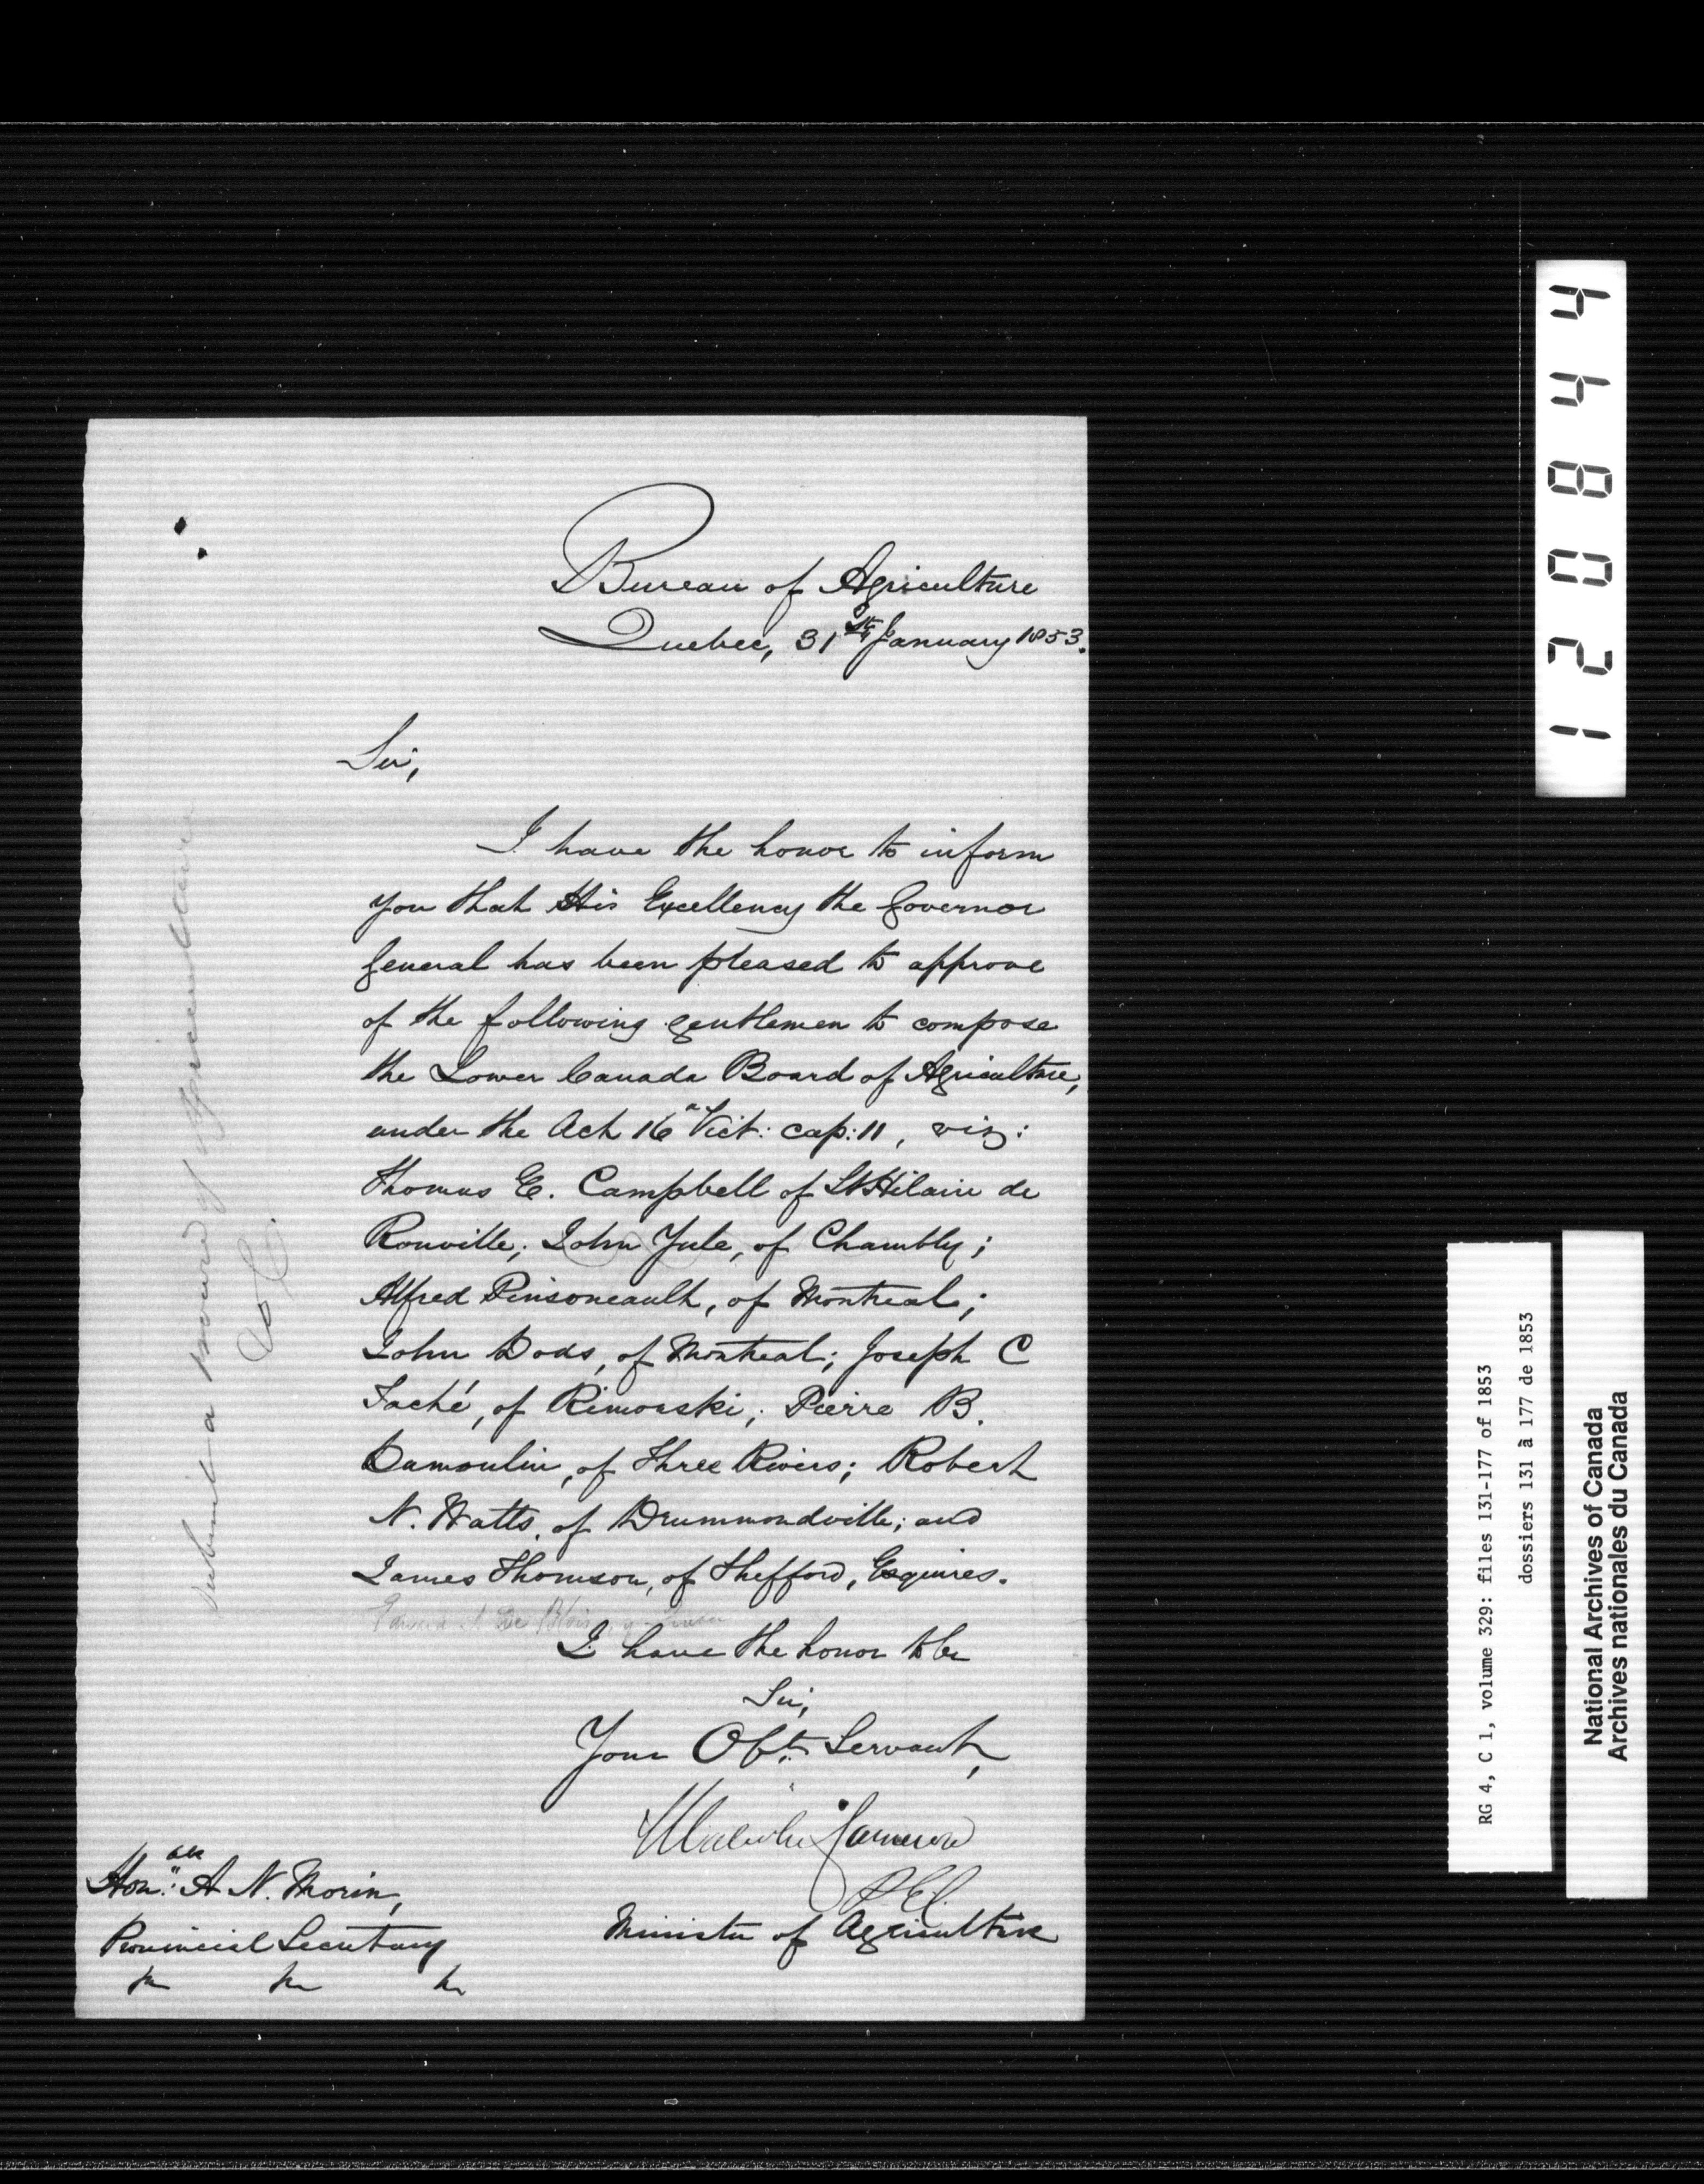 Bureau of Agriculture
Quebec, 31st January 1853.
Sir,
I have the honor to inform
you that His Excellency the Governor
General has been pleased to approve
of the following gentlemen to compose
the Lower Canada Board of Agriculture,
under the Act 16 Vict: cap: 11, viz:
Thomas E. Campbell of St Hilaire de
Rouville; John Yule, of Chambly;
Alfred Pinsoneault, of Montreal;
John Dods, of Montreal; Joseph C
Taché, of Rimouski; Pierre B.
Dumoulin, of Three Rivers; Robert
N. Watts, of Drummondville; and
James Thomson, of Shefford, Esquires.
De Blois
I have the honor to be
Sir,
Your Obt. Servant,
Malcolm Cameron
P.E.C.
Minister of Agriculture
Honble A N. Morin,
Provincial Secretary
&c &c &c
a Board of Agriculture
L C.
120844
RG 4, C 1, volume 329: files 131-177 of 1853
dossiers 131 à 177 de 1853
National Archives of Canada
Archives nationales du Canada